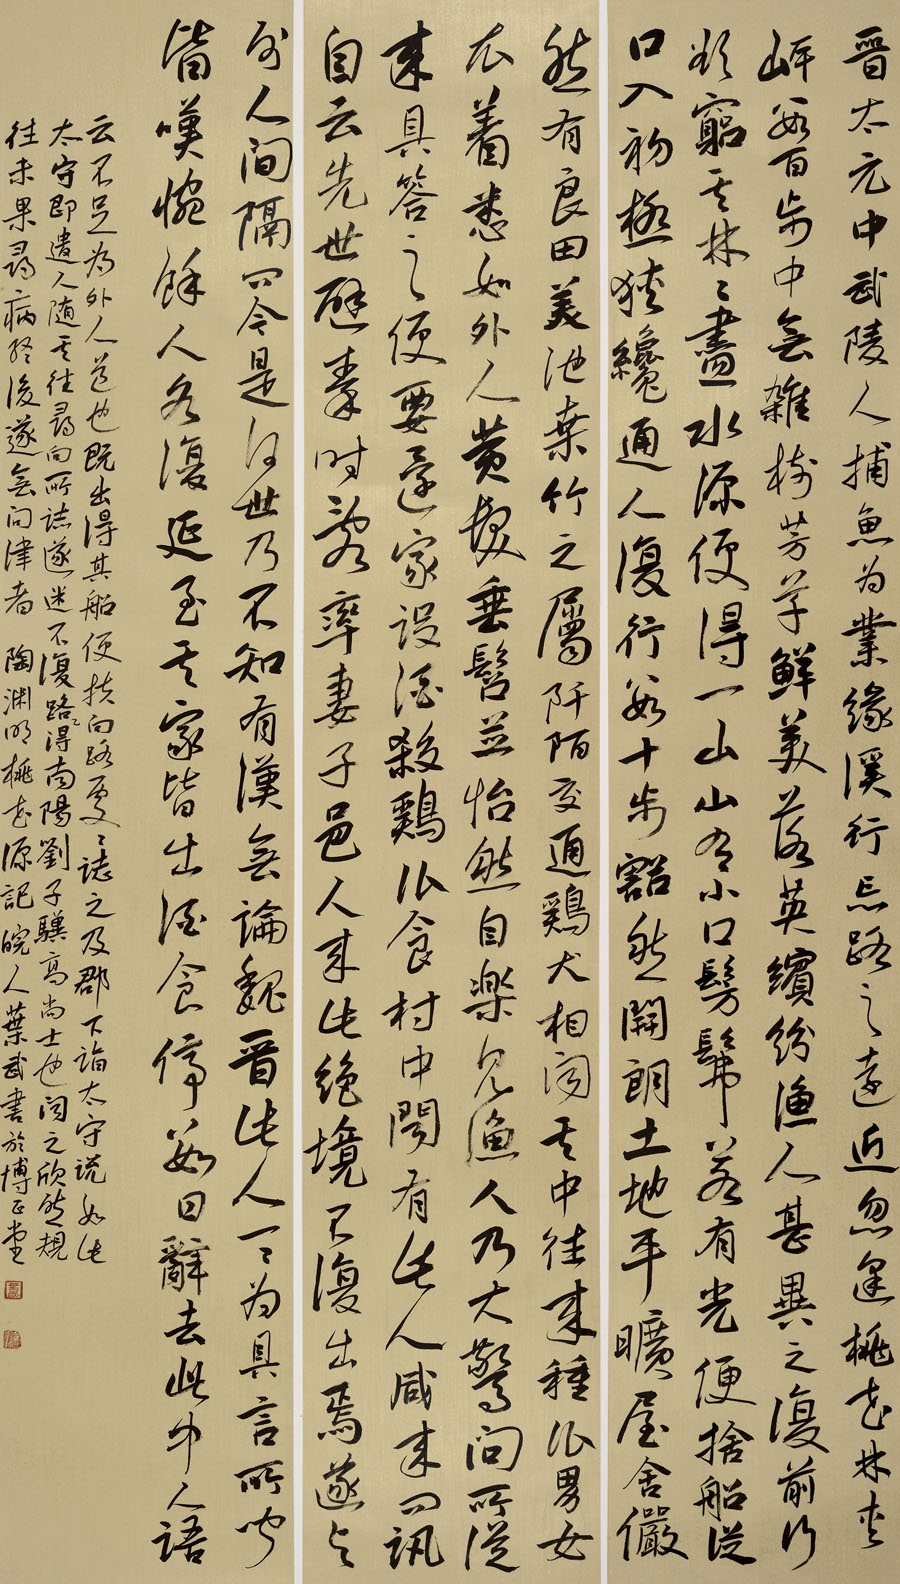 晉太元中武陵人捕魚為業緣溪行忘路之遠近忽逢桃花林夾
岸數百步中無雜樹芳草鮮美落英繽紛漁人甚異之復前行
欲窮其林林盡水源便得一山山有小口髣髴若有光便捨船從
口入初極狹纔通人復行數十步豁然開朗土地平曠屋舍儼
然有良田美池桑竹之屬阡陌交通鷄犬相聞其中往來種作男女
衣着悉如外人黃髮垂髫並怡然自樂見漁人乃大驚問所從
來具答之便要還家設酒殺鷄作食村中聞有此人咸來問訊
自云先世避秦時亂率妻子邑人來此絕境不復出焉遂与
外人間隔問今是何世乃不知有漢無論魏晉此人一一為具言所聞
皆嘆惋餘人各復延至其家皆出酒食停數日辭去此中人語
云不足為外人道也既出得其船便扶向路處處誌之及郡下詣太守說如此
太守即遣人隨其往尋向所誌遂迷不復得路南陽劉子驥高尚士也聞之欣然規
往未果尋病終後遂無問津者 陶淵明桃花源記 皖人葉武書於博正堂